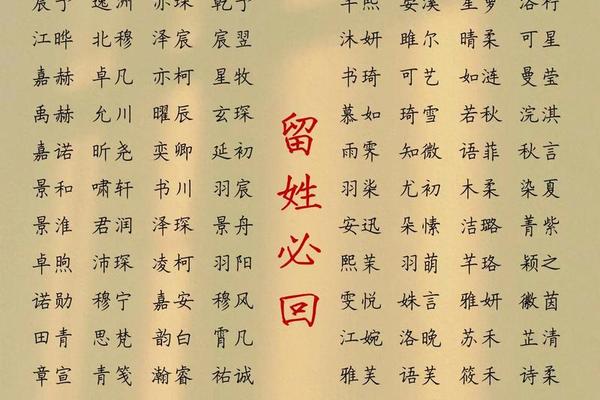 逸洲 亦琛 乾予
江晔 北穆 泽宸 宸翌
嘉赫 卓凡 亦柯 星牧
禹赫 允川 曜辰 玄琛
嘉诺 昕尧 奕卿 延初
景和 啸轩 书川 羽宸
景淮 君润 泽琛 景舟
卓煦 沛琛 凌柯 羽阳
诺勋 穆宁 嘉安 穆风
田青 思梵 韵白 霄凡
章宣 青笺 瀚睿 祐诚
留姓必回
安溪 星萝
沐妍 雎尔 晴柔 可星
书琦 可艺 如涟 曼莹
慕如 琦雪 若秋 浣淇
雨霁 知微 语菲 秋言
羽柒 尤初 木柔 染夏
安迅 朵愫 洁璐 菁紫
熙茉 羽萌 芊珞 颖之
雯悦 姝言 雅妍 徽茵
江婉 洛晚 苏禾 芷清
雅芙 语芙 筱禾 诗柔